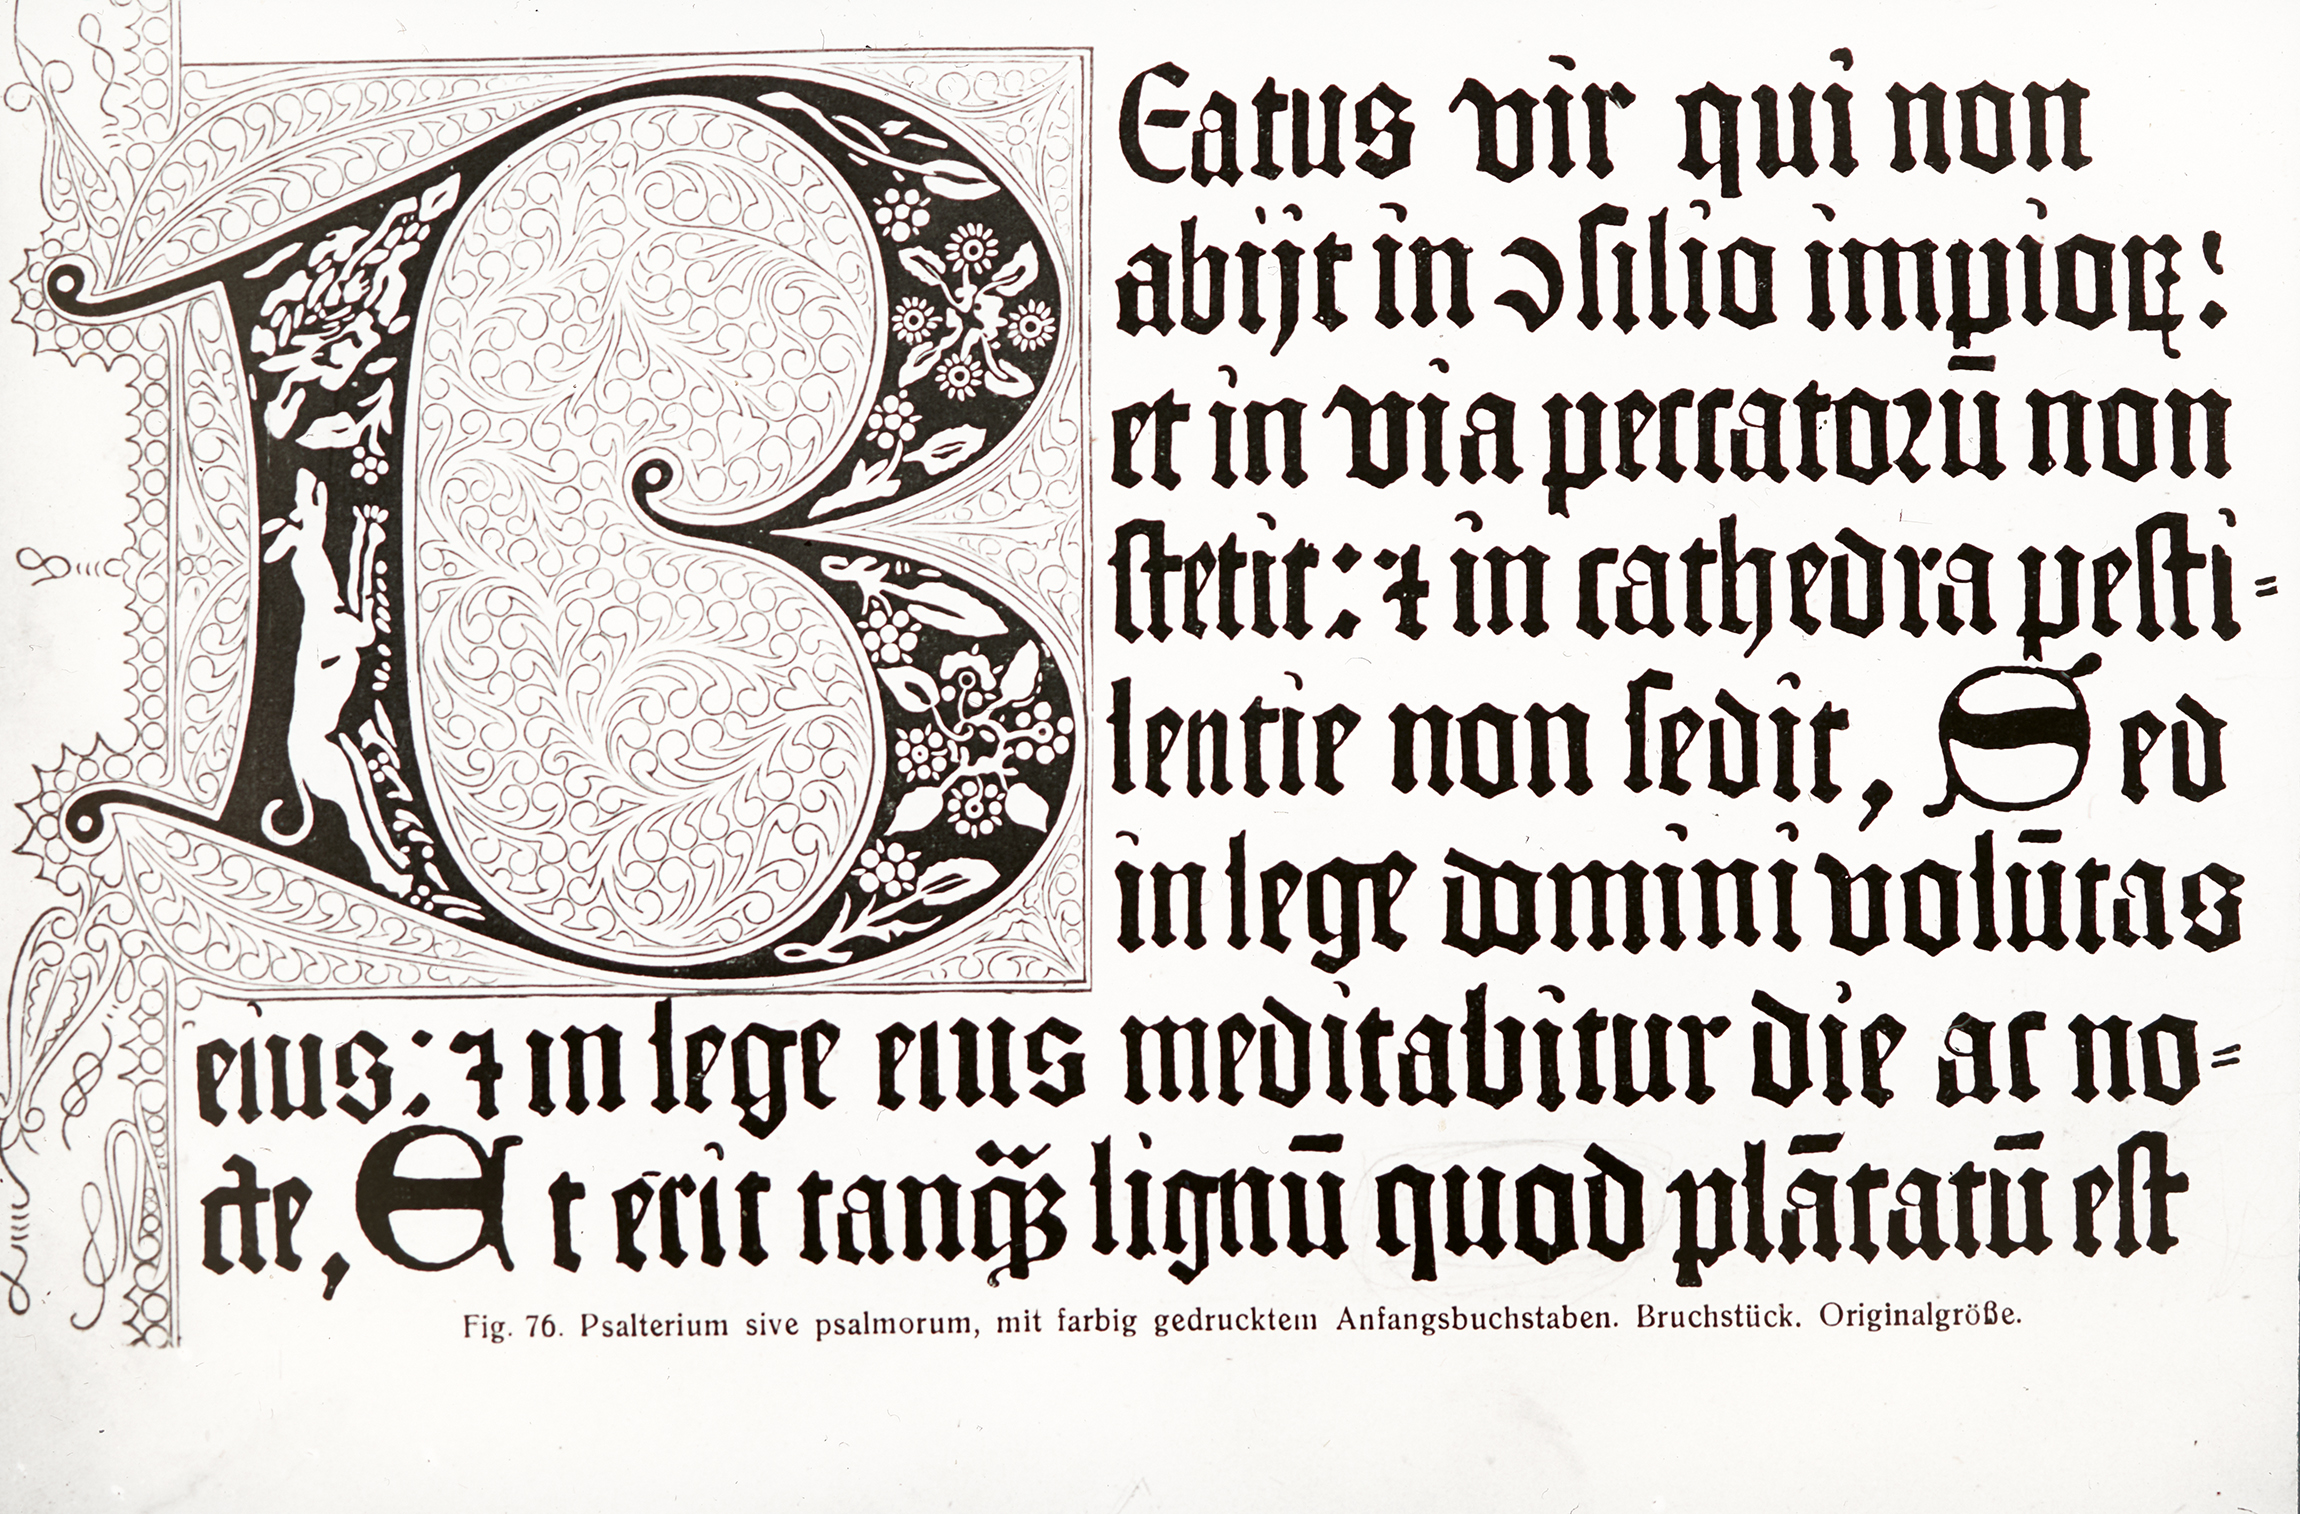 BEatus vir qui non
abijt in ↄſilio impioꝝ:
et in via peccatoꝛū non
ſtetit: ⁊ in cathedra peſti⸗
lentie non ſedit, Sed
in lege domini volūtas
eius: ⁊ ın lege eıus meditabitur die ac no⸗
cte, Et erit tanqͣꝫ lignū quod plātatū eſt
Fig. 76. Psalterium sive psalmorum, mit farbig gedrucktem Anfangsbuchstaben. Bruchstück. Originalgröße.